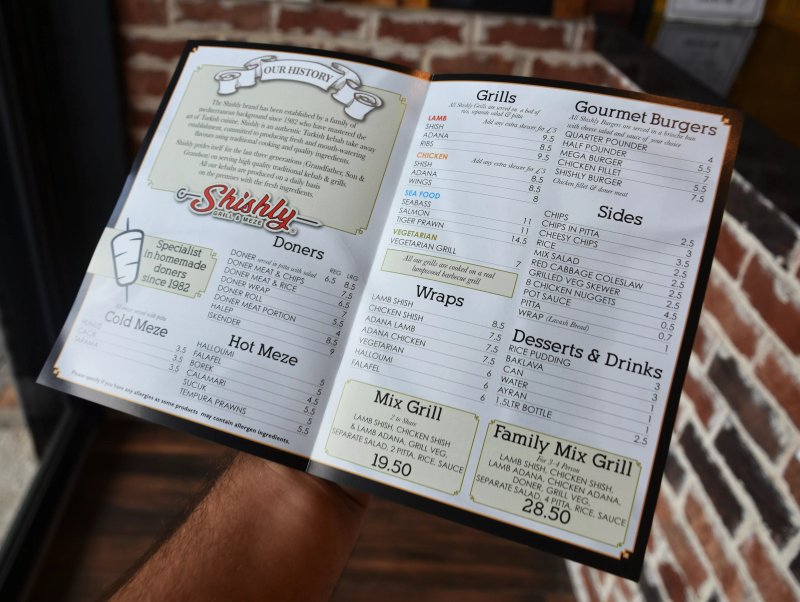 OUR HISTORY
The Shishly brand has been established by a family of
mediterranean background since 1982 who have mastered the
art of Turkish cuisine. Shishly is an authentic Turkish kebab take away
establishment, committed to producing fresh and mouth-watering
flavours using traditional cooking and quality ingredients.
Shishly prides itself for the last three generations (Grandfather, Son &
Grandson) on serving high quality traditional kebab & grills.
All our kebabs are produced on a daily basis
on the premises with the fresh ingredients.
Shishly
GRILL & MEZE
Specialist
in homemade
doners
since 1982
Doners
REG LRG
DONER served in pitta with salad 6.5 8.5
DONER MEAT & CHIPS 7.5
DONER MEAT & RICE 7.5
DONER WRAP 7
DONER ROLL 5.5
DONER MEAT PORTION 4
HALEP 8.5
ISKENDER 9
served with pitta
Cold Meze
HUMUS 3.5
CACIK 3.5
TARAMA 3.5
Hot Meze
HALLOUMI 5
FALAFEL 5
BOREK 4.5
CALAMARI 5.5
SUCUK 5
TEMPURA PRAWNS 5.5
Please specify if you have any allergies as some products may contain allergen ingredients.
Grills
All Shishly Grills are served on a bed of
rice, separate salad & pitta
LAMB Add any extra skewer for £5
SHISH 9.5
ADANA 8.5
RIBS 9.5
CHICKEN Add any extra skewer for £3
SHISH 8.5
ADANA 8.5
WINGS 8
SEA FOOD
SEABASS 11
SALMON 11
TIGER PRAWN 14.5
VEGETARIAN
VEGETARIAN GRILL 7
All our grills are cooked on a real
lumpwood barbecue grill
Wraps
LAMB SHISH 8.5
CHICKEN SHISH 7.5
ADANA LAMB 7.5
ADANA CHICKEN 7.5
VEGETARIAN 6
HALLOUMI 6
FALAFEL 6
Mix Grill
2 to Share
LAMB SHISH, CHICKEN SHISH
& LAMB ADANA, GRILL VEG,
SEPARATE SALAD, 2 PITTA, RICE, SAUCE
19.50
Gourmet Burgers
All Shishly Burgers are served in a brioche bun
with cheese salad and sauce of your choice
QUARTER POUNDER 4
HALF POUNDER 5.5
MEGA BURGER 7
CHICKEN FILLET 5
SHISHLY BURGER 7.5
Chicken fillet & doner meat
Sides
CHIPS 2.5
CHIPS IN PITTA 3
CHEESY CHIPS 3.5
RICE 2.5
MIX SALAD 2.5
RED CABBAGE COLESLAW 2.5
GRILLED VEG SKEWER 2.5
8 CHICKEN NUGGETS 4.5
POT SAUCE 0.5
PITTA 0.7
WRAP (Lavash Bread) 1
Desserts & Drinks
RICE PUDDING 3
BAKLAVA 3
CAN 1
WATER 1
AYRAN 1
1.5LTR BOTTLE 2.5
Family Mix Grill
For 3-4 Person
LAMB SHISH, CHICKEN SHISH,
LAMB ADANA, CHICKEN ADANA,
DONER, GRILL VEG,
SEPARATE SALAD, 4 PITTA, RICE, SAUCE
28.50